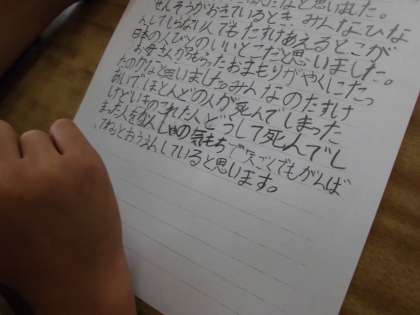 なと思いました。
せんそうがおきているとき、みんなひな
んしてしらない人でもたすけあえるとこが
日本の いいとこだと思いました。
お母さんがもらったおまもりがやくにたっ
たのかなと思いました。みんなのたすけ
あいで、ほとんどの人が死んでしまった
けどいきのこれた人どうして死んでし
まった人を の気もちで天ごくでもがんば
てねとおうえんしていると思います。